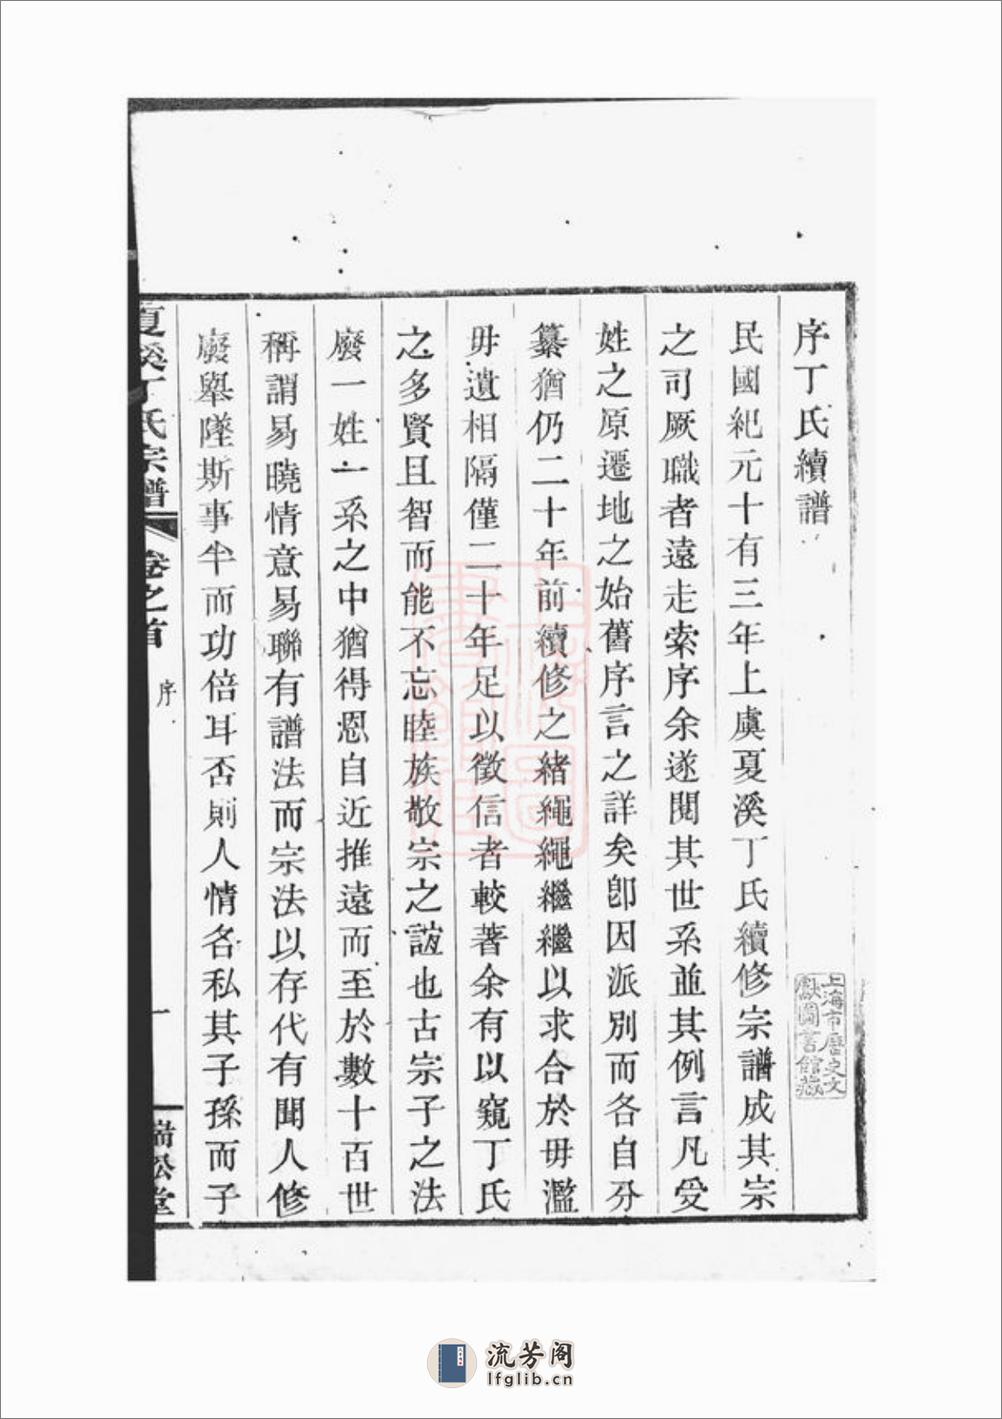 序丁氏續譜
民國紀元十有三年上虞夏溪丁氏續修宗譜成其宗
之司厥職者遠走索序余遂閱其世系並其例言凡受
姓之原遷地之始舊序言之詳矣卽因派別而各自分
纂猶仍二十年前續修之緒繩繩繼繼以求合於毋濫
毋遺相隔僅二十年足以徵信者較著余有以窺丁氏
之多賢且智而能不忘睦族敬宗之誼也古宗子之法
廢一姓一系之中猶得恩自近推遠而至於數十百世
稱謂易曉情意易聯有譜法而宗法以存代有聞人修
廢舉墜斯事半而功倍耳否則人情各私其子孫而子
夏溪丁氏宗譜
卷之首
序
一
上海市歷史文
獻圖書館藏
流芳阁
lfglib.cn